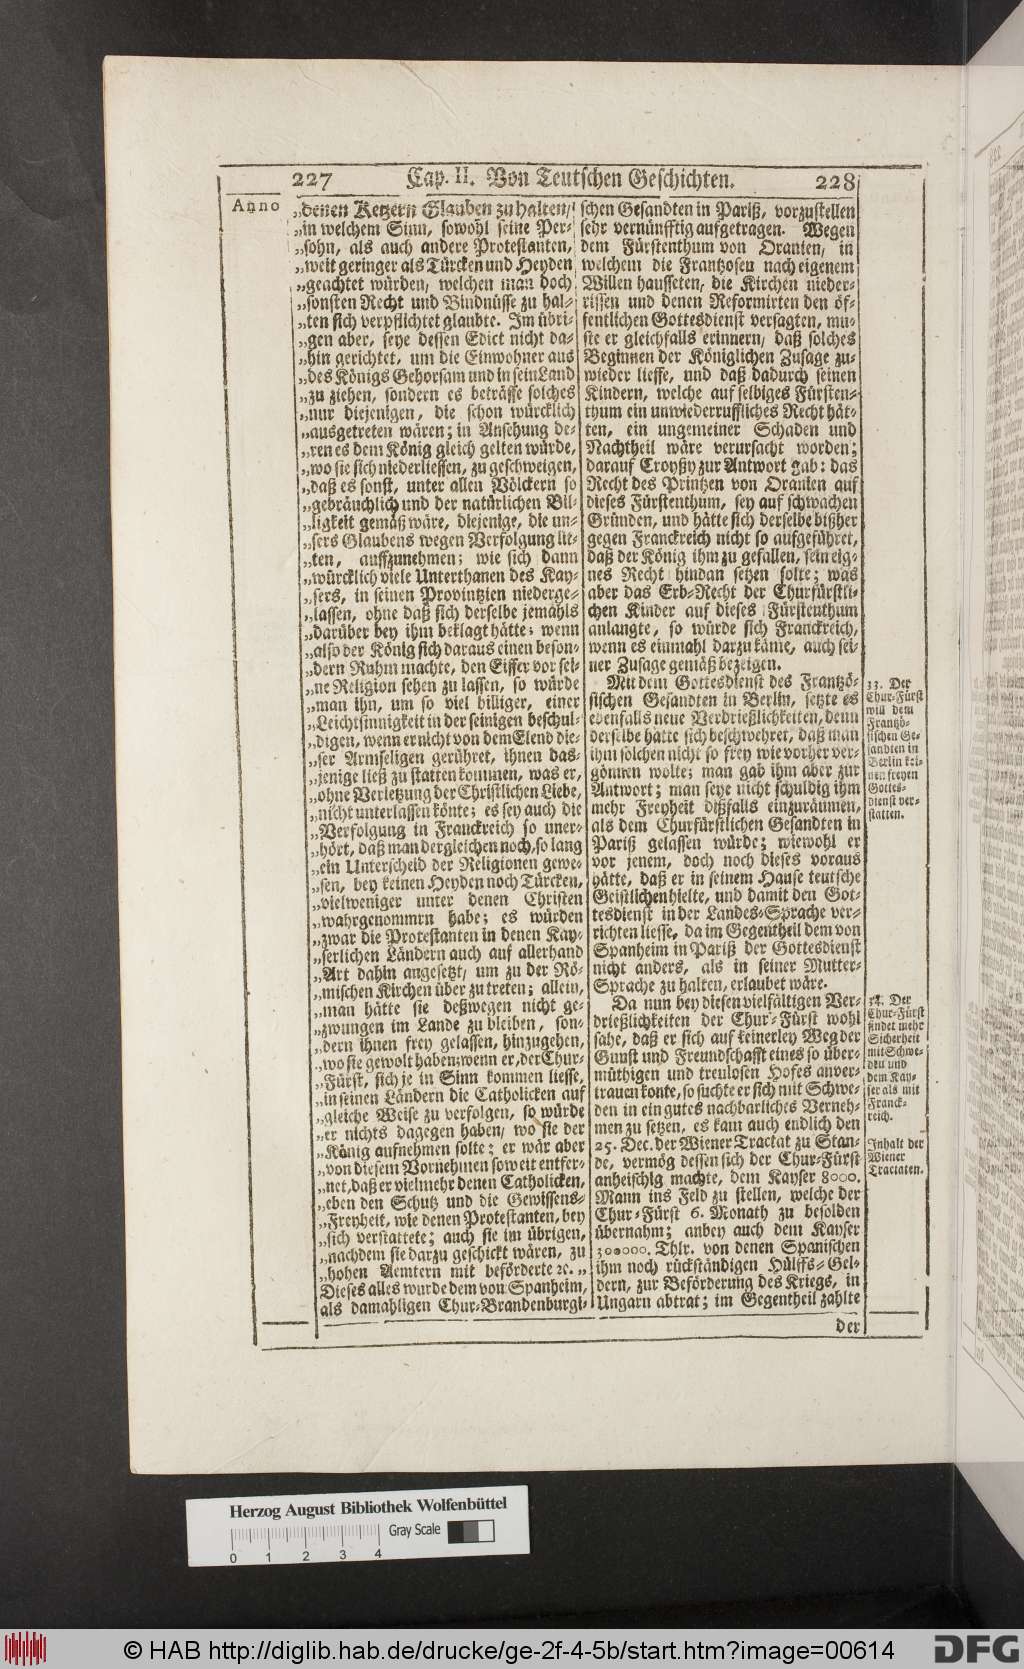 227 Cap. II. Von Teutschen Geschichten. 228
Anno
„denen Ketzern Glauben zu halten,
„in welchem Sinn, sowohl seine Per-
„sohn, als auch andere Protestanten,
„weit geringer als Türcken und Heyden
„geachtet würden, welchen man doch
„sonsten Recht und Bündnüsse zu hal-
„ten sich verpflichtet glaubte. Im übri-
„gen aber, seye dessen Edict nicht da-
„hin gerichtet, um die Einwohner aus
„des Königs Gehorsam und in sein Land
„zu ziehen, sondern es beträffe solches
„nur diejenigen, die schon würcklich
„ausgetreten wären; in Ansehung de-
„ren es dem König gleich gelten würde,
„wo sie sich niederliessen, zu geschweigen,
„daß es sonst, unter allen Völckern so
„gebräuchlich und der natürlichen Bil-
„ligkeit gemäß wäre, diejenige, die un-
„sers Glaubens wegen Verfolgung lit-
„ten, auffzunehmen; wie sich dann
„würcklich viele Unterthanen des Kay-
„sers, in seinen Provintzien niederge-
„lassen, ohne daß sich derselbe jemahls
„darüber bey ihm beklagt hätte; wenn
„also der König sich daraus einen beson-
„dern Ruhm machte, den Eiffer vor sei-
„ne Religion sehen zu lassen, so würde
„man ihn, um so viel billiger, einer
„Leichtsinnigkeit in der seinigen beschul-
„digen, wenn er nicht von dem Elend die-
„ser Armseligen gerühret, ihnen das-
„jenige ließ zu statten kommen, was er,
„ohne Verletzung der Christlichen Liebe,
„nicht unterlassen könte; es sey auch die
„Verfolgung in Franckreich so uner-
„hört, daß man dergleichen noch, so lang
„ein Unterscheid der Religionen gewe-
„sen, bey keinen Heyden noch Türcken,
„vielweniger unter denen Christen
„wahrgenommrn habe; es würden
„zwar die Protestanten in denen Kay-
„serlichen Ländern auch auf allerhand
„Art dahin angesetzt, um zu der Rö-
„mischen Kirchen über zu treten; allein,
„man hätte sie deßwegen nicht ge-
„zwungen im Lande zu bleiben, son-
„dern ihnen frey gelassen, hinzugehen,
„wo sie gewolt haben; wenn er, der Chur-
„Fürst, sich je in Sinn kommen liesse,
„in seinen Ländern die Catholicken auf
„gleiche Weise zu verfolgen, so würde
„er nichts dagegen haben, wo sie der
„König aufnehmen solte; er wär aber
„von diesem Vornehmen so weit entfer-
„net, daß er vielmehr denen Catholicken,
„eben den Schutz und die Gewissens-
„Freyheit, wie denen Protestanten, bey
„sich verstattete; auch sie im übrigen,
„nachdem sie darzu geschickt wären, zu
„hohen Aemtern mit beförderte ꝛc.„
Dieses alles wurde dem von Spanheim,
als damahligen Chur-Brandenburgi-
schen Gesandten in Pariß, vorzustellen
sehr vernünfftig aufgetragen. Wegen
dem Fürstenthum von Oranien, in
welchem die Frantzosen nach eigenem
Willen hausseten, die Kirchen nieder-
rissen und denen Reformirten den öf-
fentlichen Gottesdienst versagten, mu-
ste er gleichfalls erinnern, daß solches
Beginnen der Königlichen Zusage zu-
wieder lieffe, und daß dadurch seinen
Kindern, welche auf selbiges Fürsten-
thum ein unwiederruffliches Recht hät-
ten, ein ungemeiner Schaden und
Nachtheil wäre verursacht worden;
darauf Croyßy zur Antwort gab: das
Recht des Printzen von Oranien auf
dieses Fürstenthum, sey auf schwachen
Gründen, und hätte sich derselbe bißher
gegen Franckreich nicht so aufgeführet,
daß der König ihm zu gefallen, sein eig-
nes Recht hindan setzen solte; was
aber das Erb-Recht der Churfürstli-
chen Kinder auf dieses Fürstenthum
anlangte, so würde sich Franckreich,
wenn es einmahl darzu käme, auch sei-
ner Zusage gemäß bezeigen.
Mit dem Gottesdienst des Frantzö-
sischen Gesandten in Berlin, setzte es
ebenfalls neue Verdrießlichkeiten, denn
derselbe hatte sich beschwehret, daß man
ihm solchen nicht so frey wie vorher ver-
gönnen wolte; man gab ihm aber zur
Antwort; man seye nicht schuldig ihm
mehr Freyheit dißfalls einzuräumen,
als dem Churfürstlichen Gesandten in
Pariß gelassen würde; wiewohl er
vor jenem, doch noch dieses voraus
hätte, daß er in seinem Hause teutsche
Geistlichen hielte, und damit den Got-
tesdienst in der Landes-Sprache ver-
richten liesse, da im Gegentheil dem von
Spanheim in Pariß der Gottesdienst
nicht anders, als in seiner Mutter-
Sprache zu halten, erlaubet wäre.
Da nun bey diesen vielfältigen Ver-
drießlichkeiten der Chur-Fürst wohl
sahe, daß er sich auf keinerley Weg der
Gunst und Freundschafft eines so über-
müthigen und treulosen Hofes anver-
trauen konte, so suchte er sich mit Schwe-
den in ein gutes nachbarliches Verneh-
men zu setzen, es kam auch endlich den
25. Dec. der Wiener Tractat zu Stan-
de, vermög dessen sich der Chur-Fürst
anheischig machte, dem Kayser 8000.
Mann ins Feld zu stellen, welche der
Chur-Fürst 6. Monath zu besolden
übernahm; anbey auch dem Kayser
300000. Thlr. von denen Spanischen
ihm noch rückständigen Hülffs-Gel-
dern, zur Beförderung des Kriegs, in
Ungarn abtrat; im Gegentheil zahlte
der
33. Der
Chur-Fürst
will dem
Frantzö-
sischen Ge-
sandten in
Berlin kei-
nen freyen
Gottes-
dienst ver-
statten.
34. Der
Chur-Fürst
findet mehr
Sicherheit
mit Schwe-
den und
dem Kay-
ser als mit
Franck-
reich.
Inhalt der
Wiener
Tractaten.
Herzog August Bibliothek Wolfenbüttel
Gray Scale
0 1 2 3 4
© HAB http://diglib.hab.de/drucke/ge-2f-4-5b/start.htm?image=00614
DFG